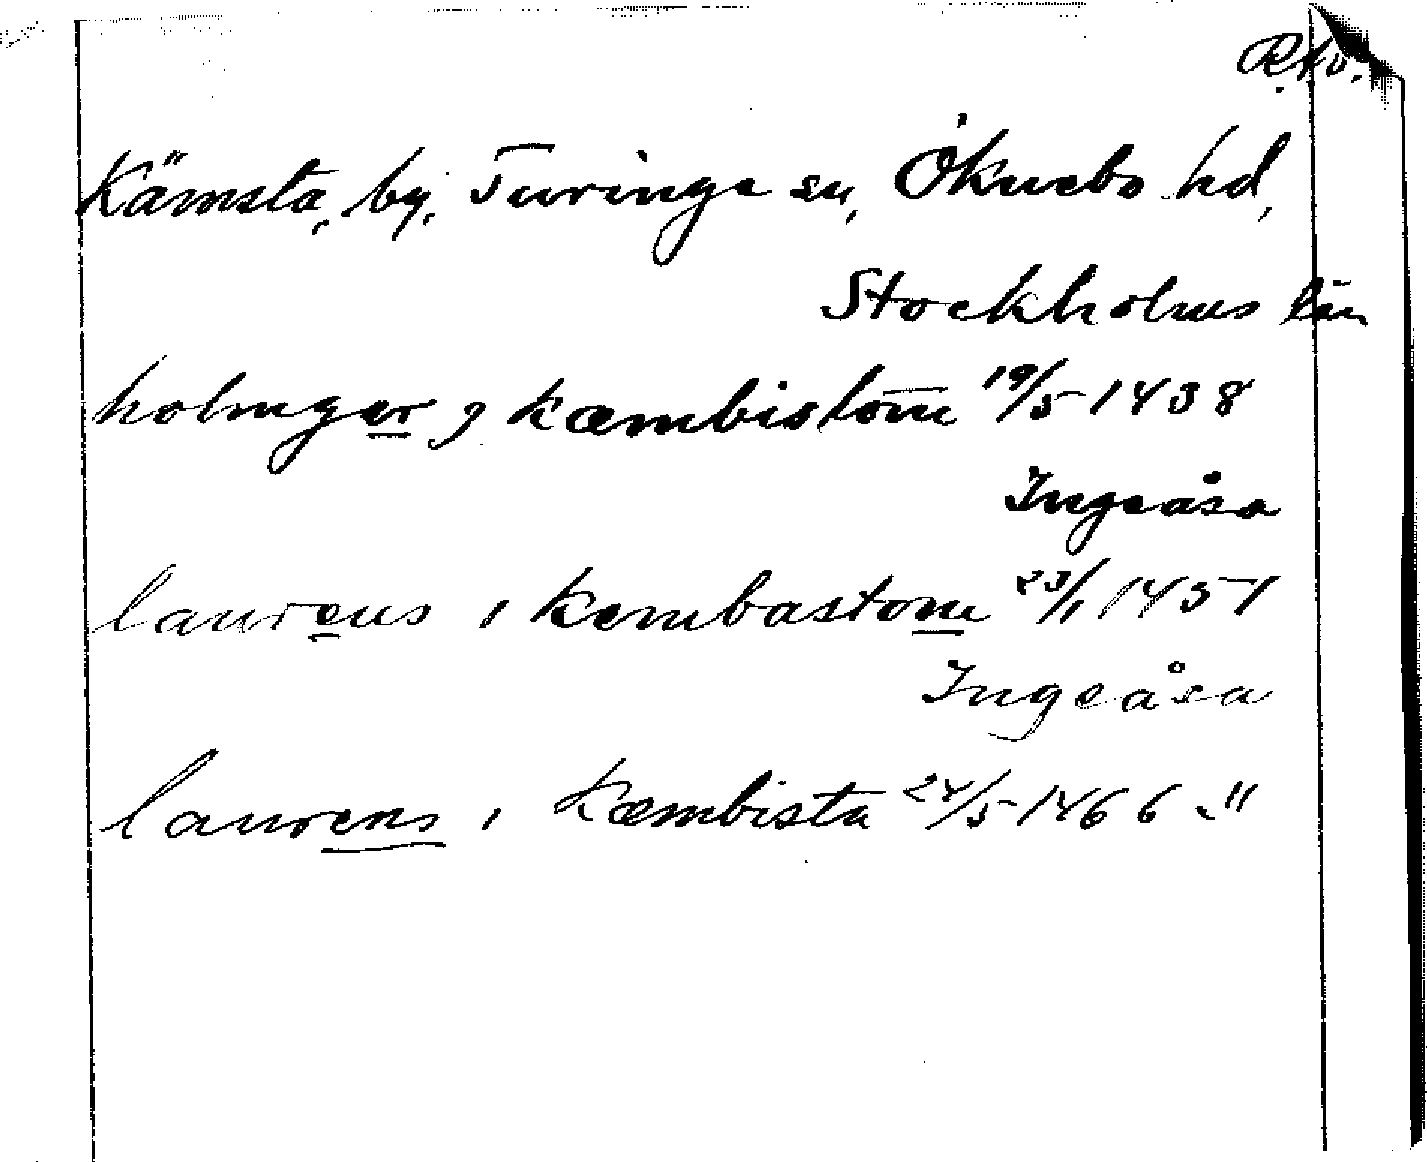 Kämsta, by, Turinge sn, Öknebo hd,
Stockholms län
holmger j kæmbistom 19/5 1438
Ingeåsa
laurens i kembastom 23/1 1451
Ingeåsa
laurens i kæmbista 24/5 1466 -"